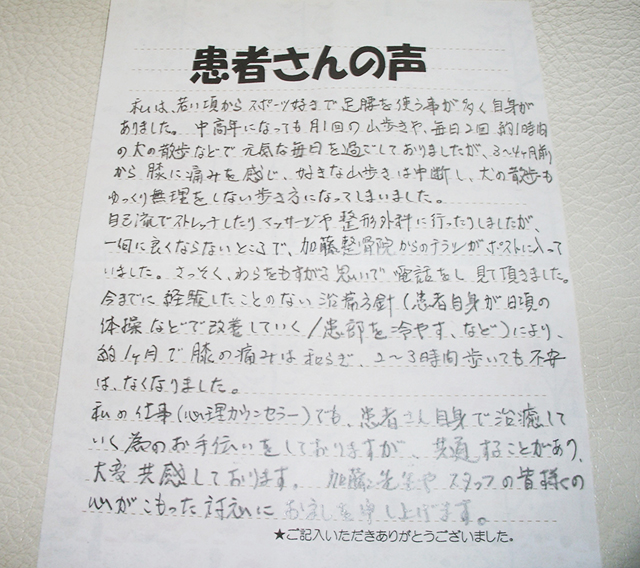 患者さんの声
私は、若い頃からスポーツ好きで足腰を使う事が多く自身が
ありました。中高年になっても月1回の山歩きや、毎日2回約1時間
の犬の散歩などで元気な毎日を過ごしておりましたが、3〜4ヶ月前
から膝に痛みを感じ、好きな山歩きは中断し、犬の散歩も
ゆっくり無理をしない歩き方になってしまいました。
自己流でストレッチしたりマッサージや整形外科に行ったりしましたが、
一向に良くならないところで、加藤整骨院からのチラシがポストに入って
いました。さっそく、わらをもすがる思いで電話をし見て頂きました。
今までに経験したことのない治療方針(患者自身が日頃の
体操などで改善していく/患部を冷やす、など)により、
約1ヶ月で膝の痛みは和らぎ、2〜3時間歩いても不安
は、なくなりました。
私の仕事(心理カウンセラー)でも、患者さん自身で治癒して
いく為のお手伝いをしておりますが、共通することがあり、
大変共感しております。加藤先生やスタッフの皆様の
心がこもった対応に を申し上げます。
★ご記入いただきありがとうございました。